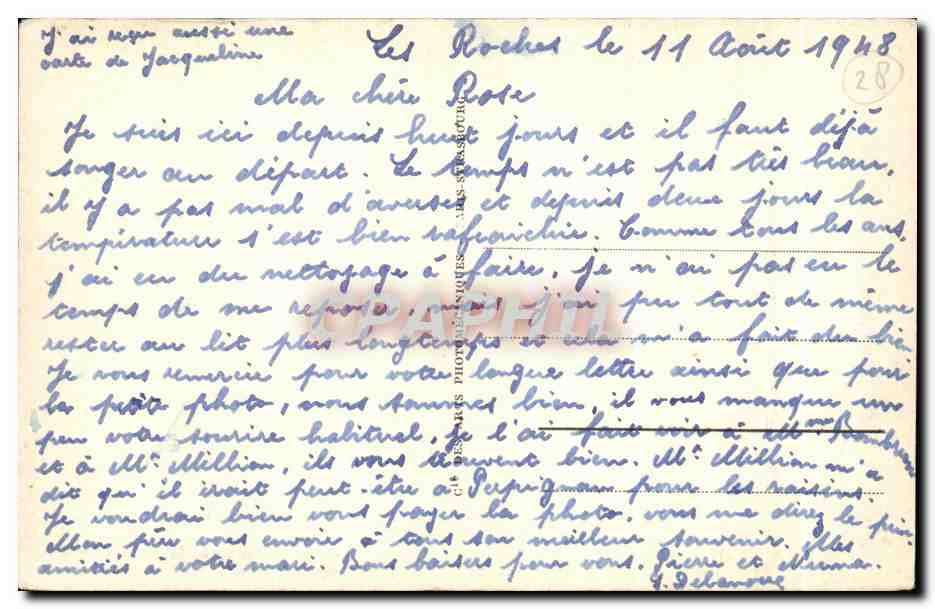 J'ai reçu aussi une
carte de Jacqueline
Les Roches le 11 Août 1948
28
Ma chère Rose
Je suis ici depuis huit jours et il faut déjà
songer au départ. Le temps n'est pas très beau,
il y a pas mal d'averses et depuis deux jours la
température s'est bien rafraichie. Comme tous les ans,
j'ai eu du nettoyage à faire, je n'ai pas eu le
temps de me reposer, mais j'ai pu tout de même
rester au lit plus longtemps et cela m'a fait du bien
Je vous remercie pour votre longue lettre ainsi que pour
la petite photo, nous sommes bien, il vous manque un
peu votre sourire habituel, je l'ai fait voir à Mme
et à Mr. Millian, ils vous trouvent bien. Mr Millian m'a
dit qu'il irait peut-être à Perpignan pour les raisins.
Je voudrai bien vous payer la photo, vous me direz le prix.
Mon père vous envoie à tous son meilleur souvenir. Mes
amitiés à votre mari. Bons baisers pour vous, Pierre et Numa.
J. Delanoue
Cie DES ARTS PHOTOMÉCANIQUES PARIS-STRASBOURG
CPAPHIL